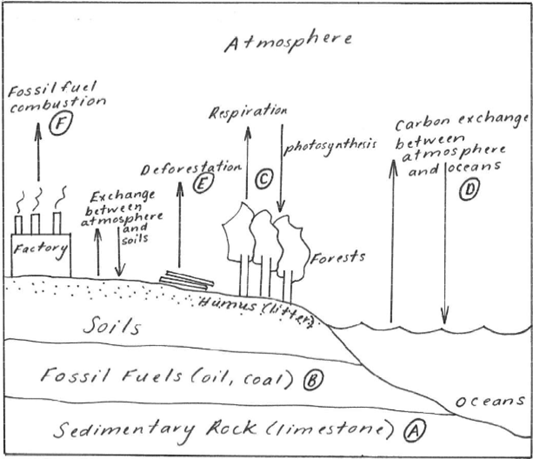 Atmosphere
Fossil fuel
combustion
F
Respiration
photosynthesis
C
Carbon exchange
between
atmosphere
and oceans
D
Deforestation
E
Exchange
between
atmosphere
and
soils
Factory
Forests
Humus (litter)
Soils
Fossil Fuels (oil, coal) B
Oceans
Sedimentary Rock (limestone) A